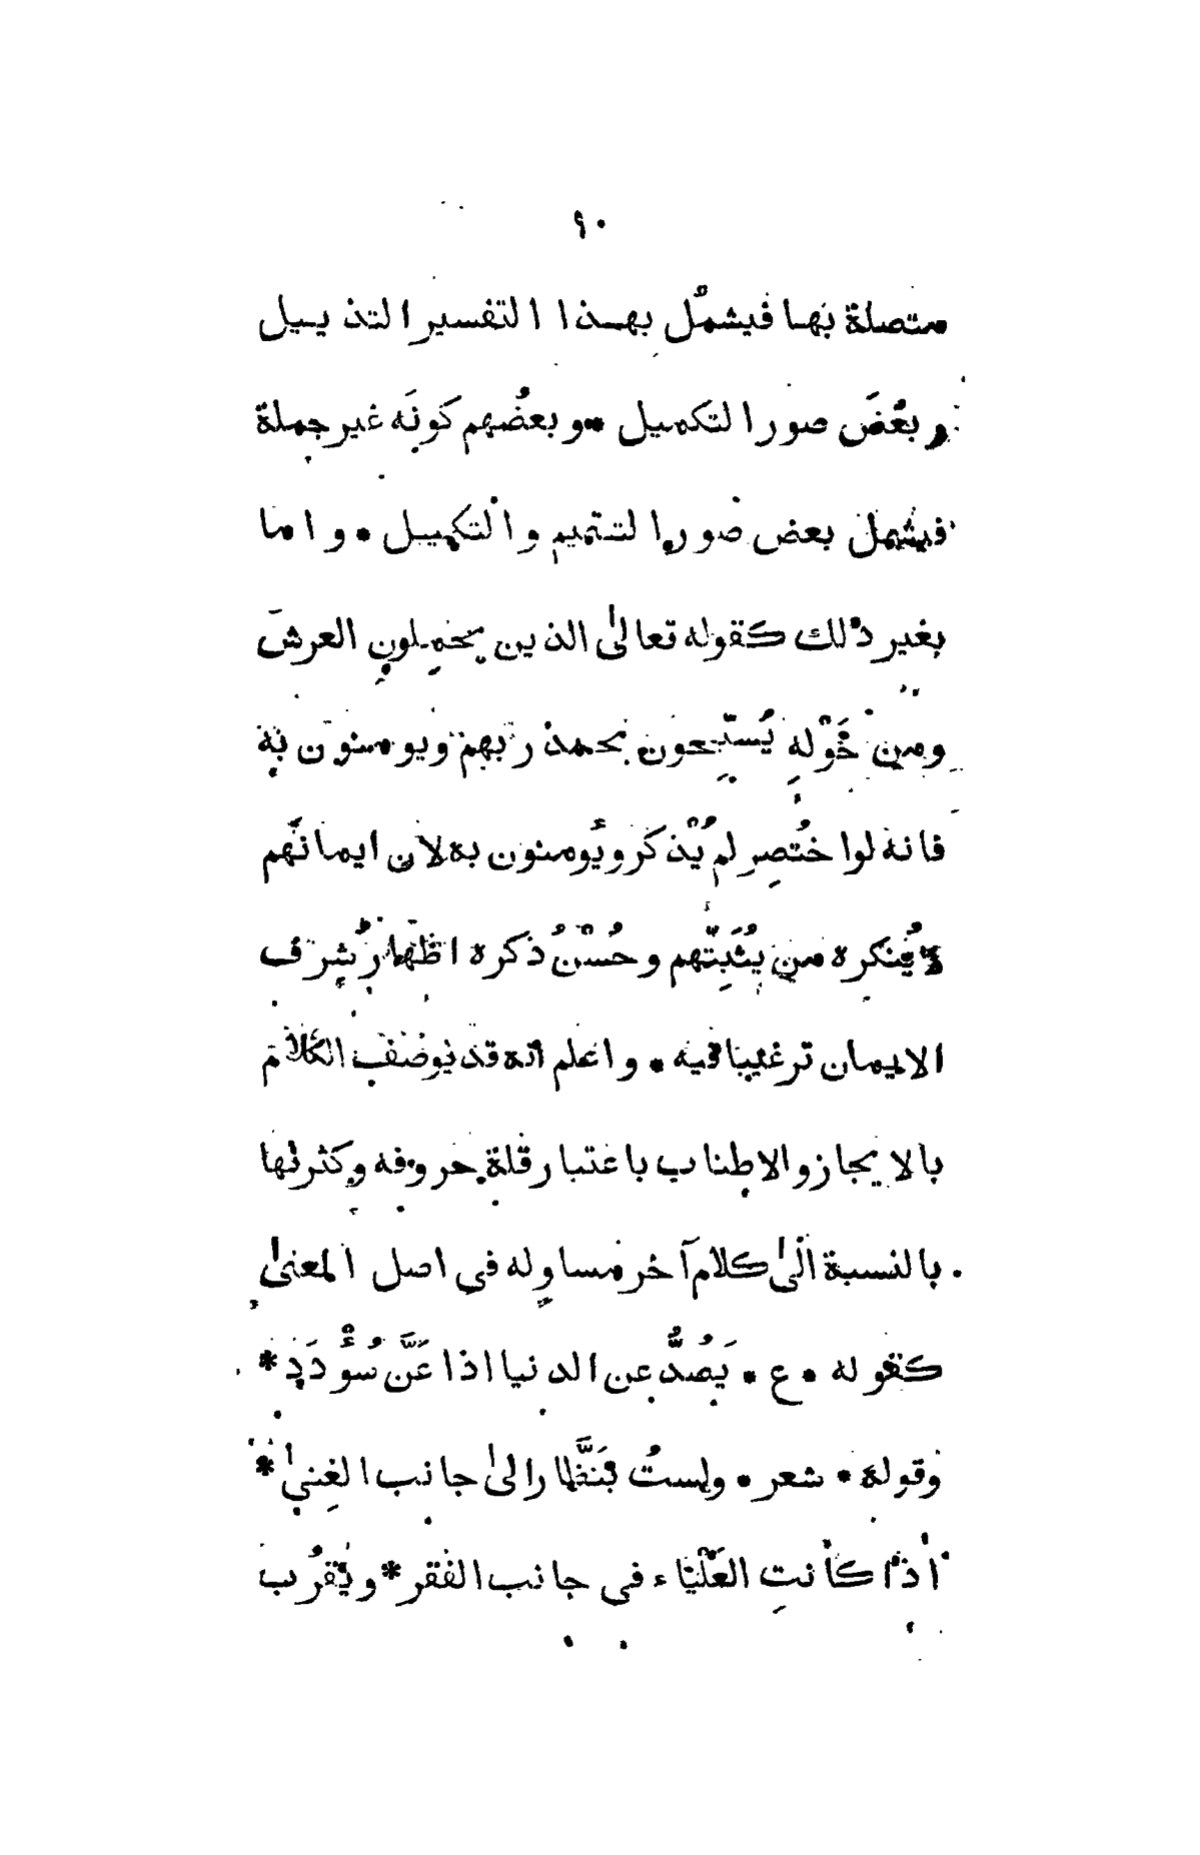 ٩٠
متصلة بها فيشمل بهذا التفسير التذييل
وبعضَ صور التكميل • وبعضُهم كونَه غير جملة
فيشمل بعض صور التتميم والتكميل • واما
بغير ذلك كقوله تعالىٰ الذين يحملون العرش
ومن حَوْله يُسبِّحون بحمد ربهم ويومنون به
فانه لو اختُصِر لم يُذْكر ويُومنون به لان ايمانهم
لا يُنكره من يُثبِتُهم وحُسْنُ ذكره اظهار شرف
الايمان ترغيبا فيه • واعلم انه قد يوصف الكلام
بالايجاز والاطناب باعتبار قلة حروفه وكثرتها
بالنسبة الىٰ كلام آخر مساوٍ له في اصل المعنىٰ
كقوله • ع • يَصُدُّ عن الدنيا اذا عَنَّ سُؤْدَدِ *
وقوله • شعر • ولستُ بنَظَّار الىٰ جانب الغِنىٰ *
اذا كانتِ العَلْيَاء في جانب الفقر * ويقرُب